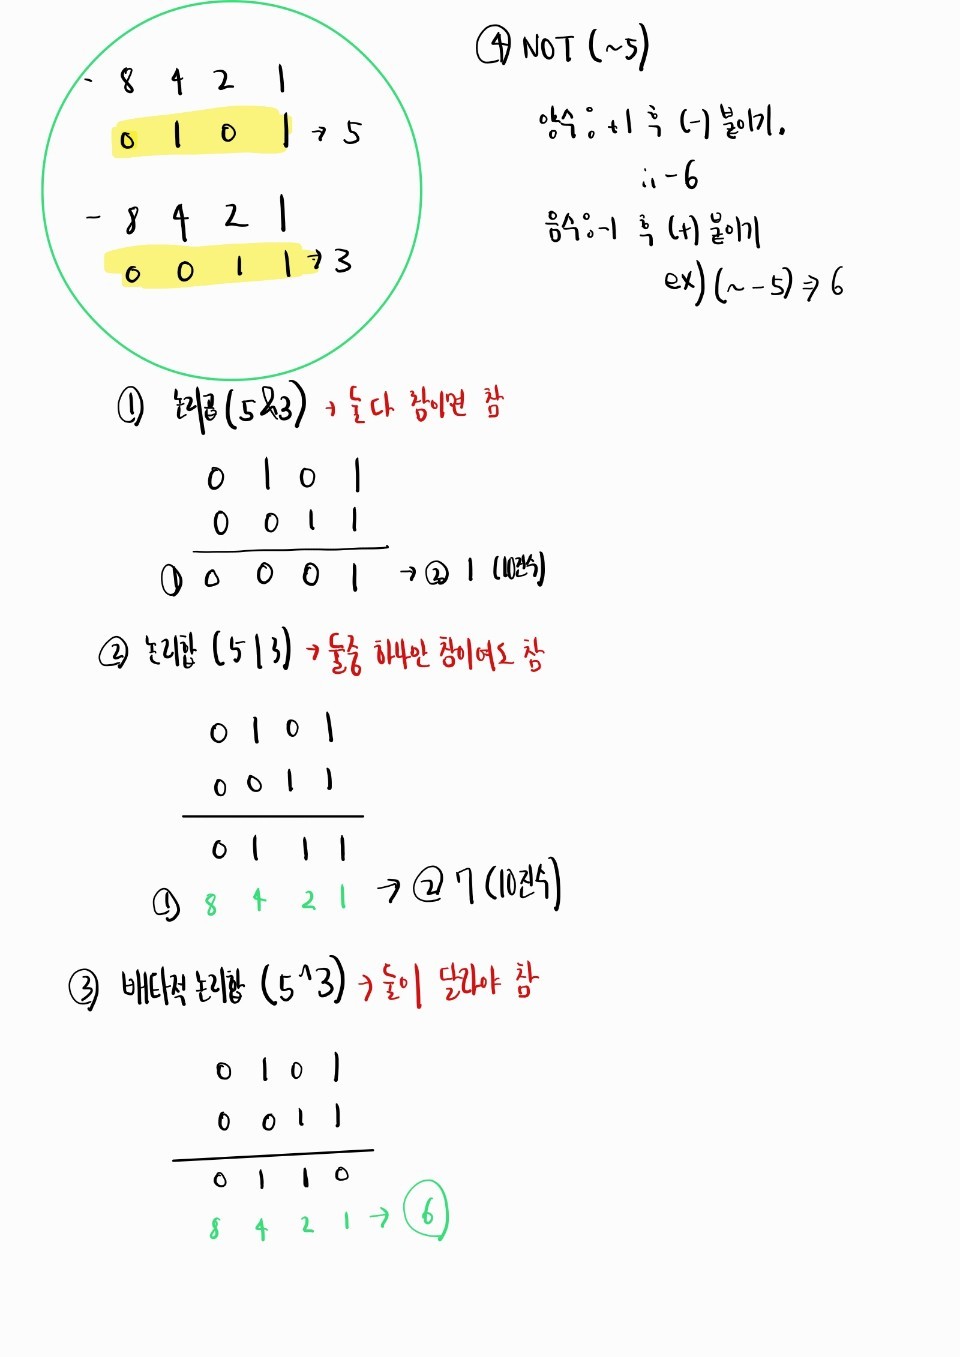 - 8 4 2 1
0 1 0 1 → 5
- 8 4 2 1
0 0 1 1 → 3
④ NOT (~5)
양수: +1 후 (-) 붙이기.
∴ -6
음수: -1 후 (+) 붙이기
ex) (~ -5) ⇒ 6
① 논리곱 (5&3) → 둘다 참이면 참
0 1 0 1
0 0 1 1
① 0 0 0 1 → ② 1 (10진수)
② 논리합 (5|3) → 둘중 하나만 참이여도 참
0 1 0 1
0 0 1 1
0 1 1 1
① 8 4 2 1 → ② 7 (10진수)
③ 배타적 논리합 (5^3) → 둘이 달라야 참
0 1 0 1
0 0 1 1
0 1 1 0
8 4 2 1 → 6